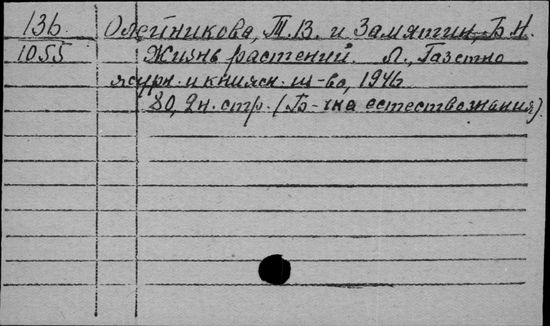 136 Олейникова, Т.В. и Замятин, Б.Н.
1055 Жизнь растений. Л., Газетно
журн. и книжн. из-во, 1946
80, 2н. стр. (Б-чка естествознания).